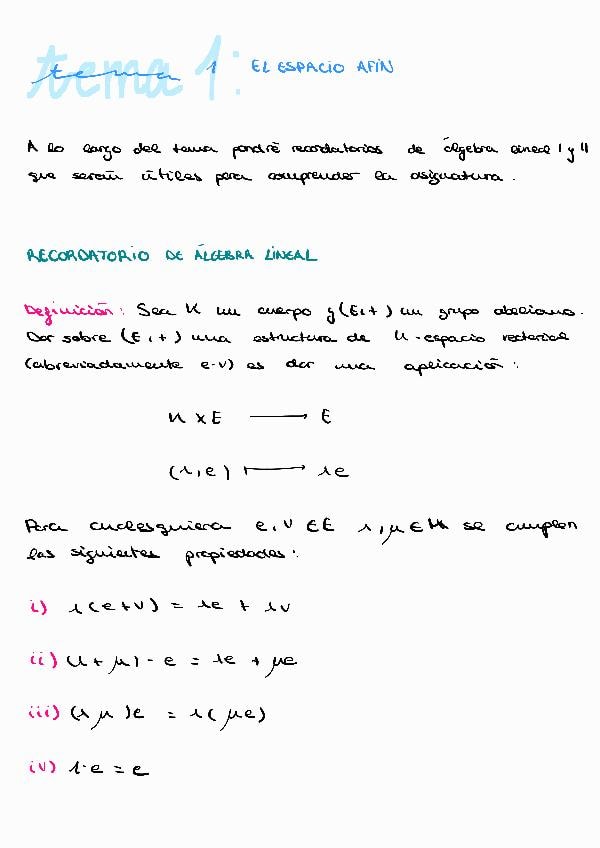 tema 1: EL ESPACIO AFÍN
A lo largo del tema pondré recordatorios de álgebra lineal I y II
que serán útiles para comprender la asignatura.
RECORDATORIO DE ÁLGEBRA LINEAL
Definición: Sea K un cuerpo y (E,+) un grupo abeliano.
Dar sobre (E,+) una estructura de K-espacio vectorial
(abreviadamente e-v) es dar una aplicación:
K x E ⟶ E
(λ,e) ⟼ λe
Para cualesquiera e,v ∈ E λ,μ ∈ K se cumplen
las siguientes propiedades:
i) λ(e+v) = λe + λv
ii) (λ+μ)·e = λe + μe
iii) (λμ)e = λ(μe)
iv) 1·e = e